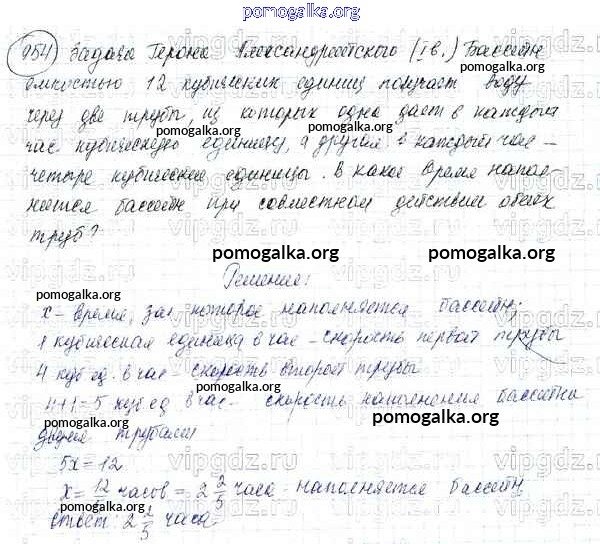 pomogalka.org
954) Задача Герона Александрийского (I в.) Бассейн
емкостью 12 кубических единиц получает воду
через две трубы, из которых одна дает в каждый
час кубическую единицу, а другая в каждый час -
четыре кубические единицы. В какое время напол-
няется бассейн при совместном действии обеих
труб?
pomogalka.org pomogalka.org
Решение:
x - время, за которое наполняется бассейн;
1 кубическая единица в час - скорость первой трубы
4 куб ед. в час скорость второй трубы
4+1=5 куб ед в час - скорость наполнения бассейна
двумя трубами
5x=12
x= 12/5 часов = 2 2/5 часа - наполняется бассейн
ответ: 2 2/5 часа.
pomogalka.org